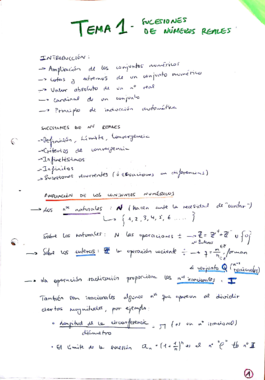 TEMA 1 - SUCESIONES
DE NÚMEROS REALES
INTRODUCCIÓN:
→ Ampliación de los conjuntos numéricos
→ Cotas y extremos de un conjunto numérico
→ Valor absoluto de un nº real
→ Cardinal de un conjunto
→ Principio de inducción matemática
SUCESIONES DE Nº REALES
- Definición, Límite, Convergencia
- Criterios de convergencia
- Infinitésimos
- Infinitos
- Sucesiones recurrentes
AMPLIACIÓN DE LOS CONJUNTOS NUMÉRICOS
→ Los nº naturales: N (nacen ante la necesidad de "contar")
↳ {1, 2, 3, 4, 5, 6 ... }
Sobre los naturales: N las operaciones
→ Sobre los enteros: Z la operación cociente ÷ →
el conjunto Q (racionales)
→ La operación radicación proporciona los nº irracionales. I
También son irracionales algunos nº que aparecen al dividir
ciertas magnitudes, por ejemplo:
• Longitud de la circunferencia = π (es un nº irracional)
diámetro
• El límite de la sucesión aₙ = (1 + 1/n)ⁿ es el nº "e" nº I
1